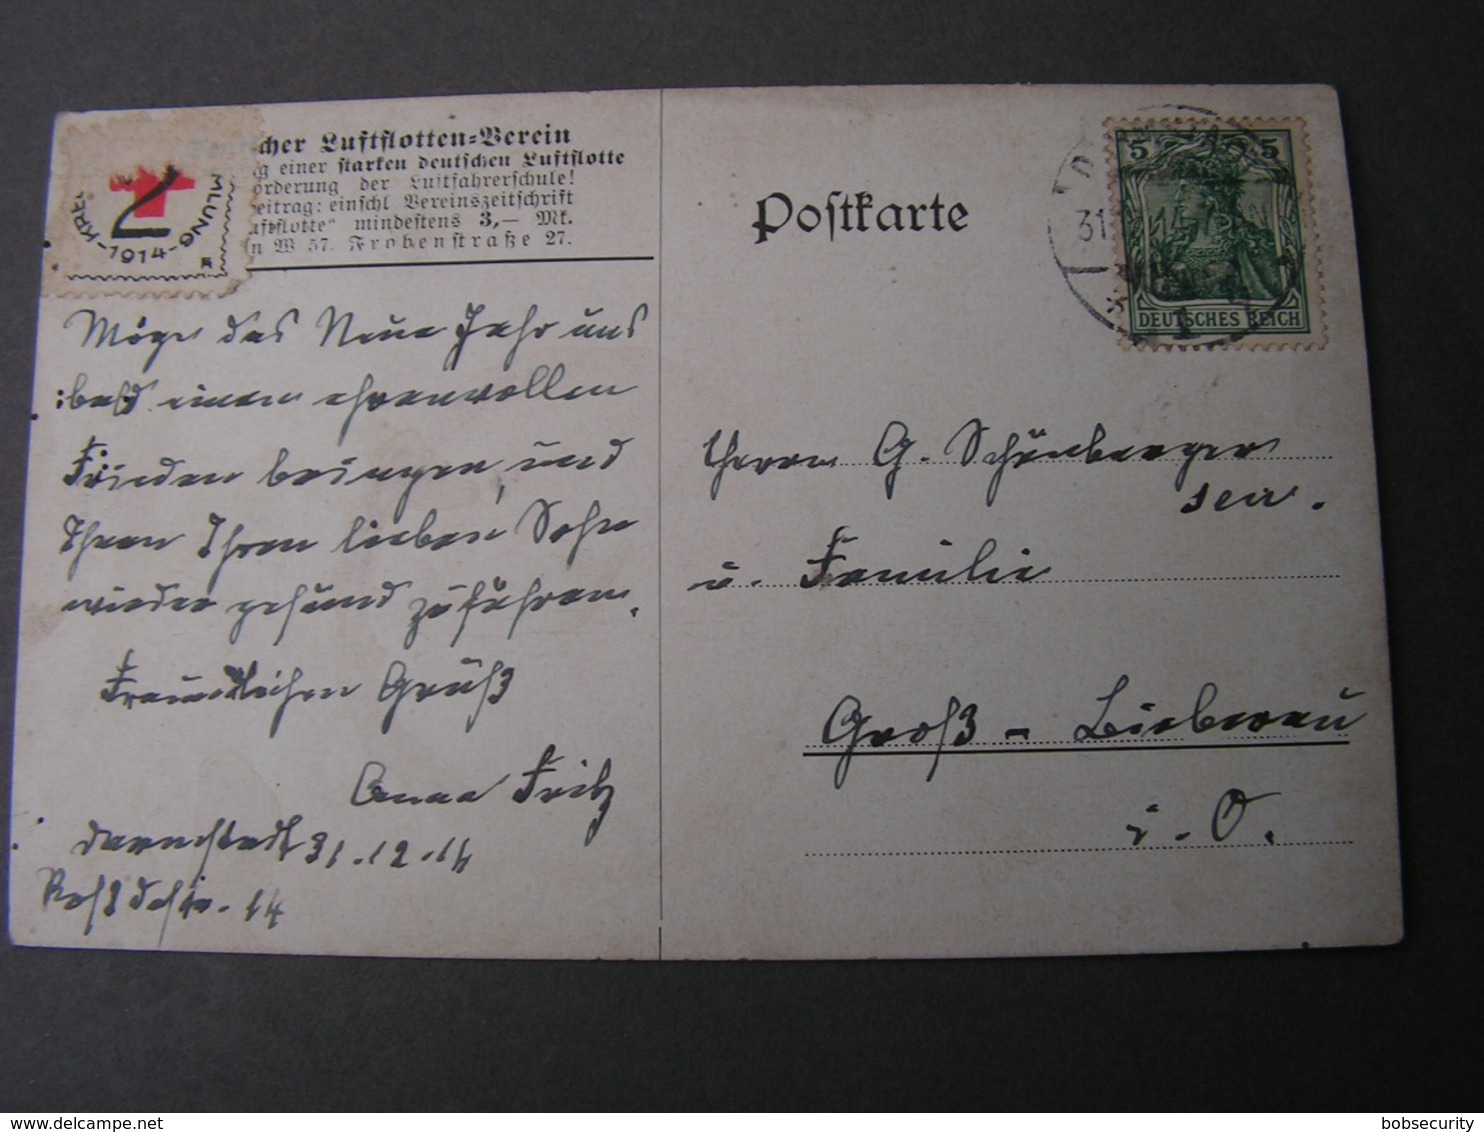 Deutscher Luftflotten-Verein
g einer starken deutschen Luftflotte
örderung der Luftfahrerschule!
eitrag: einschl Vereinszeitschrift
uftflotte" mindestens 3,— Mk.
n W 57. Frobenstraße 27.
MLUNG
1914
Möge das Neue Jahr uns
bald einen ehrenvollen
Frieden bringen, und
Ihnen Ihren lieben Sohn
wieder gesund zuführen.
Freundlichen Gruß
Anna Fritz
Darmstadt 31.12.14
14
Postkarte
5 5
DEUTSCHES REICH
31
Herrn G. Schönberger
sen.
u. Familie
Groß-Bieberau
i. O.
bobsecurity